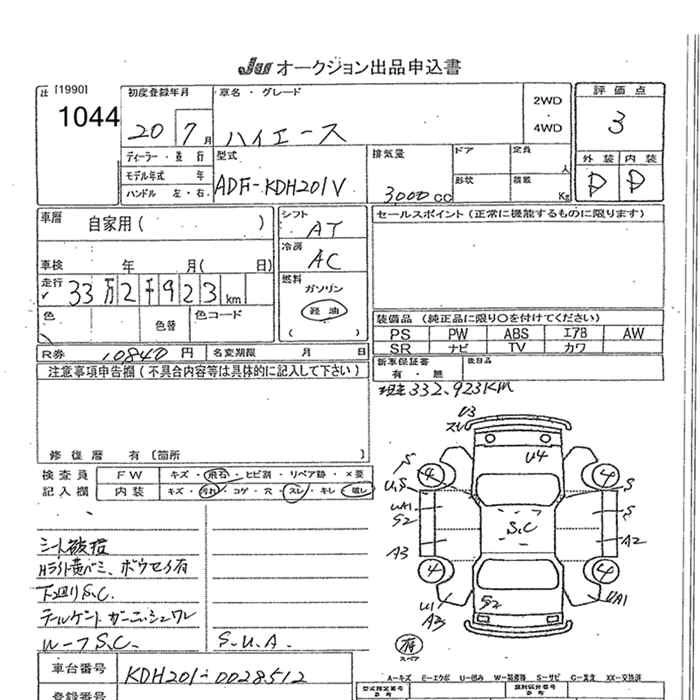 JU オークション出品申込書
[1990]
1044
初度登録年月
車名・グレード
2WD
・
4WD
評価点
20
7月
ハイエース
3
ディーラー・並行
型式
排気量
ドア
定員
人
外装 内装
モデル年式 年
ハンドル 左・右
ADF-KDH201V
3000cc
形状
積載
Kg
D D
車暦
自家用( )
シフト
AT
セールスポイント(正常に機能するものに限ります)
冷房
AC
車検 年 月( 日)
走行
33万2千923km
燃料
ガソリン
軽油
( )
色
色替
色コード
装備品(純正品に限り○を付けてください)
PS PW ABS エアB AW
SR ナビ TV カワ
R券 10840円
名変期限 月 日
新車保証書
有・無
後日品
注意事項申告欄(不具合内容等は具体的に記入して下さい)
現走332,923KM
修復暦 有〔箇所 〕
検査員
記入欄
FW キズ・飛石・ヒビ割・リペア跡・×要
内装 キズ・汚れ・コゲ・穴・スレ・キレ・破レ
U3
スレ
U4
S
4
4
U,S
S
UA1
S2
S
S.C
A3
A2
4
4
U1
A3
S2
UA1
シート破損
Hライト黄バミ、ボウセイ有
下廻りS.C.
テールゲート ガーニッシュワレ
ルーフS.C.
S.U.A.
有
スペア
車台番号
KDH201-0028512
A-キズ E-エクボ U-凹み W-補修跡 S-サビ C-腐食 XX-交換済
型式指定番号
類別区分番号
登録番号